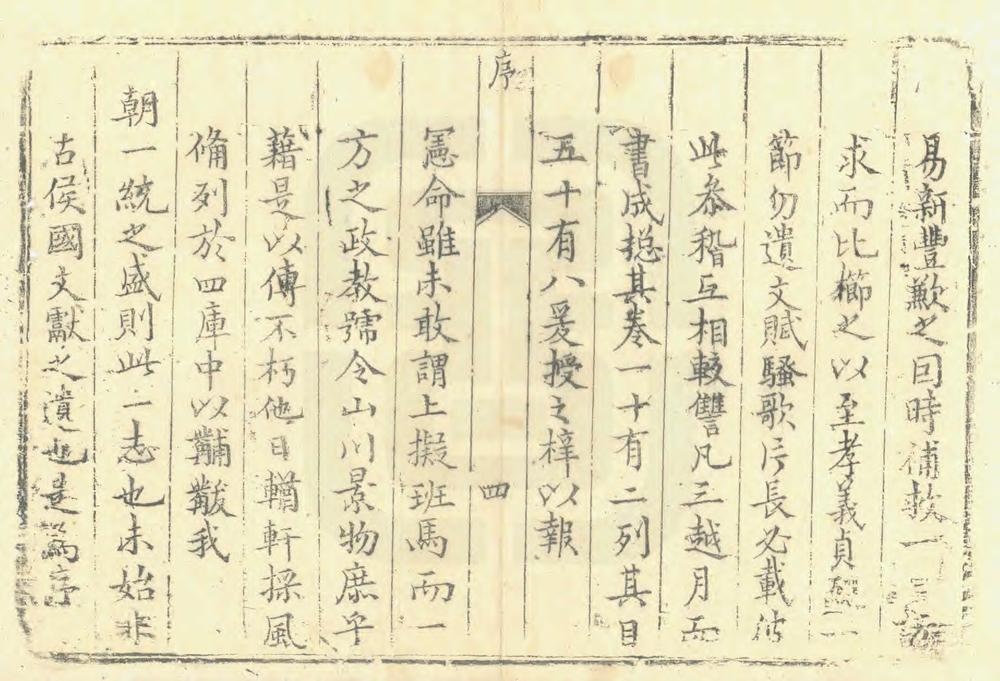 易新豐歉之回時補救一
求而比櫛之以至孝義貞
節勿遺文賦騷歌片長必載彼
此叅稽互相較讐凡三越月而
書成揔其卷一十有二列其目
五十有八爰授之梓以報
序
四
憲命雖未敢謂上擬班馬而一
方之政教號令山川景物庶乎
藉是以傳不朽他日輶軒採風
俻列於四庫中以黼黻我
朝一統之盛則此一志也未始非
古侯國文獻之遺也是爲序